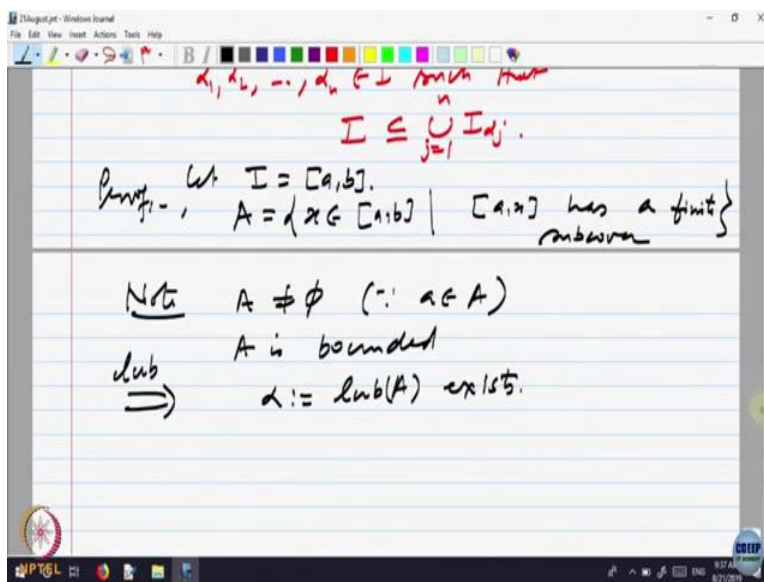 21August.jnt - Windows Journal
File Edit View Insert Actions Tools Help
α₁, α₂, ..., αₙ ∈ I such that
I ⊆ ⋃ⁿⱼ₌₁ Iαⱼ.
Proof:- Let I = [a,b].
A = {x ∈ [a,b] | [a,x] has a finite
subcover}
Note A ≠ ϕ (∵ a ∈ A)
A is bounded
lub
⟹ α := lub(A) exists.
NPTEL
CDEEP
ENG
9:37 AM
8/21/2019